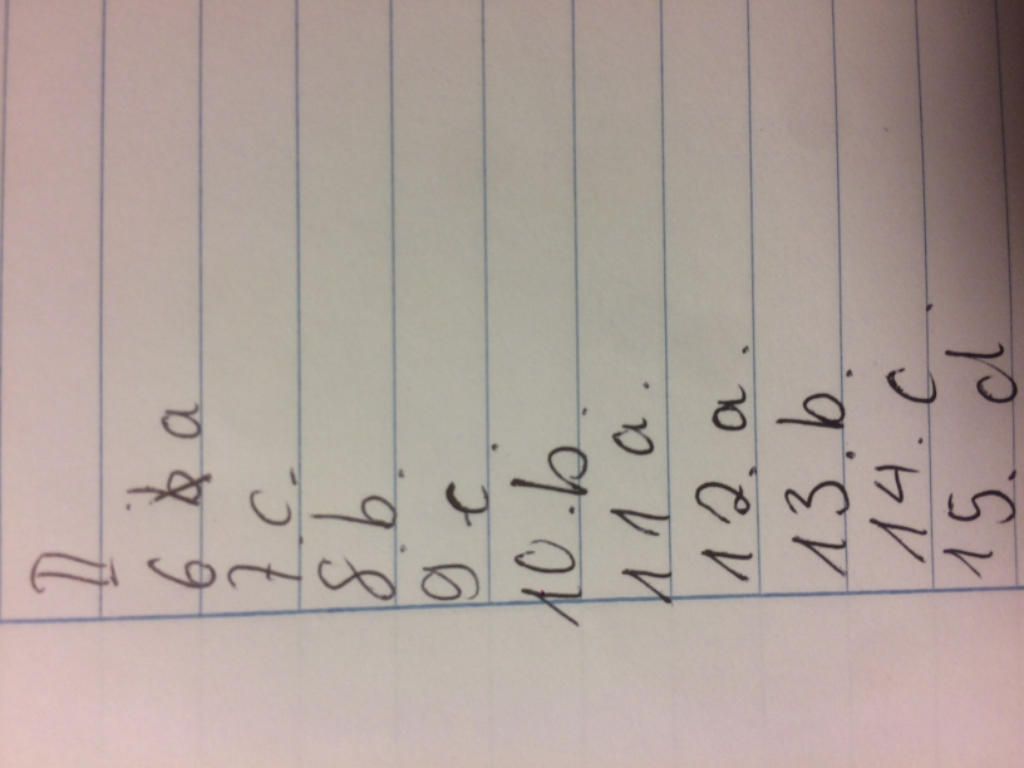 II
6 a
7. c.
8. b.
9 c.
10. b.
11 a.
12. a.
13. b.
14. c.
15. d